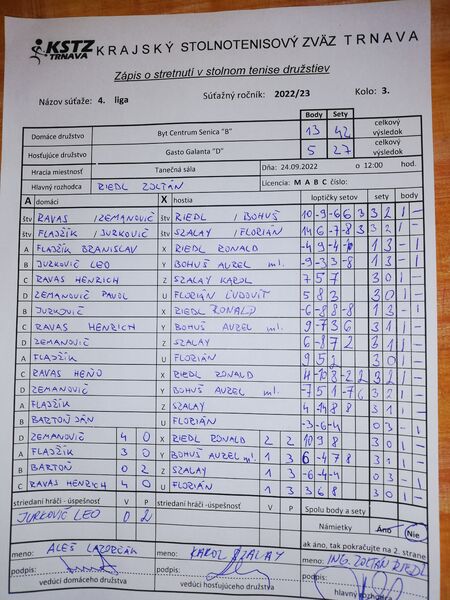 KSTZ TRNAVA KRAJSKÝ STOLNOTENISOVÝ ZVÄZ TRNAVA
Zápis o stretnutí v stolnom tenise družstiev
Názov súťaže: 4. liga Súťažný ročník: 2022/23 Kolo: 3.
Body Sety celkový výsledok
Domáce družstvo Byt Centrum Senica "B" 13 42
Hosťujúce družstvo Gasto Galanta "D" 5 27 celkový výsledok
Hracia miestnosť Tanečná sála Dňa: 24.09.2022 o 12:00 hod.
Hlavný rozhodca RIEDL ZOLTÁN Licencia: M A B C číslo:
A domáci X hostia loptičky setov sety body
štv RAVAS / ZEMANOVIČ štv RIEDL / BOHUŠ 10 -9 -6 6 3 3 2 1 -
štv FLAJŽÍK / JURKOVIČ štv SZALAY / FLORIÁN 14 6 -7 -8 3 3 2 1 -
A FLAJŽÍK BRANISLAV X RIEDL RONALD -4 9 -4 1 3 - 1
B JURKOVIČ LEO Y BOHUŠ AUREL ml. -9 -3 3 -8 1 3 - 1
C RAVAS HENRICH Z SZALAY KAROL 7 5 7 3 0 1 -
D ZEMANOVIČ PAVOL U FLORIÁN ĽUDOVÍT 5 8 3 3 0 1 -
B JURKOVIČ X RIEDL RONALD -6 -8 8 -8 1 3 - 1
C RAVAS HENRICH Y BOHUŠ AUREL ml. 9 -7 3 6 3 1 1 -
D ZEMANOVIČ Z SZALAY 6 -8 7 2 3 1 1 -
A FLAJŽÍK U FLORIÁN 9 5 2 3 0 1 -
C RAVAS HEŇO X RIEDL RONALD 4 -10 8 -2 2 3 2 1 -
D ZEMANOVIČ Y BOHUŠ AUREL ml. -7 5 1 -7 6 3 2 1 -
A FLAJŽÍK Z SZALAY 4 -14 8 8 3 1 1 -
B BARTOŇ JÁN U FLORIÁN -3 -6 -4 0 3 - 1
D ZEMANOVIČ 4 0 X RIEDL RONALD 2 2 10 9 8 3 0 1 -
A FLAJŽÍK 3 0 Y BOHUŠ AUREL ml. 1 3 6 -4 7 8 3 1 1 -
B BARTOŇ 0 2 Z SZALAY 1 3 -6 -4 -4 0 3 - 1
C RAVAS HENRICH 4 0 U FLORIÁN 1 3 3 6 8 3 0 1 -
striedaní hráči - úspešnosť V P striedaní hráči - úspešnosť V P Spolu body a sety
JURKOVIČ LEO 0 2 Námietky Áno Nie
ak áno, tak pokračujte na 2. strane
meno: ALEŠ meno: KAROL SZALAY meno: ING. ZOLTÁN RIEDL
podpis: podpis: podpis:
vedúci domáceho družstva vedúci hosťujúceho družstva hlavný rozhodca